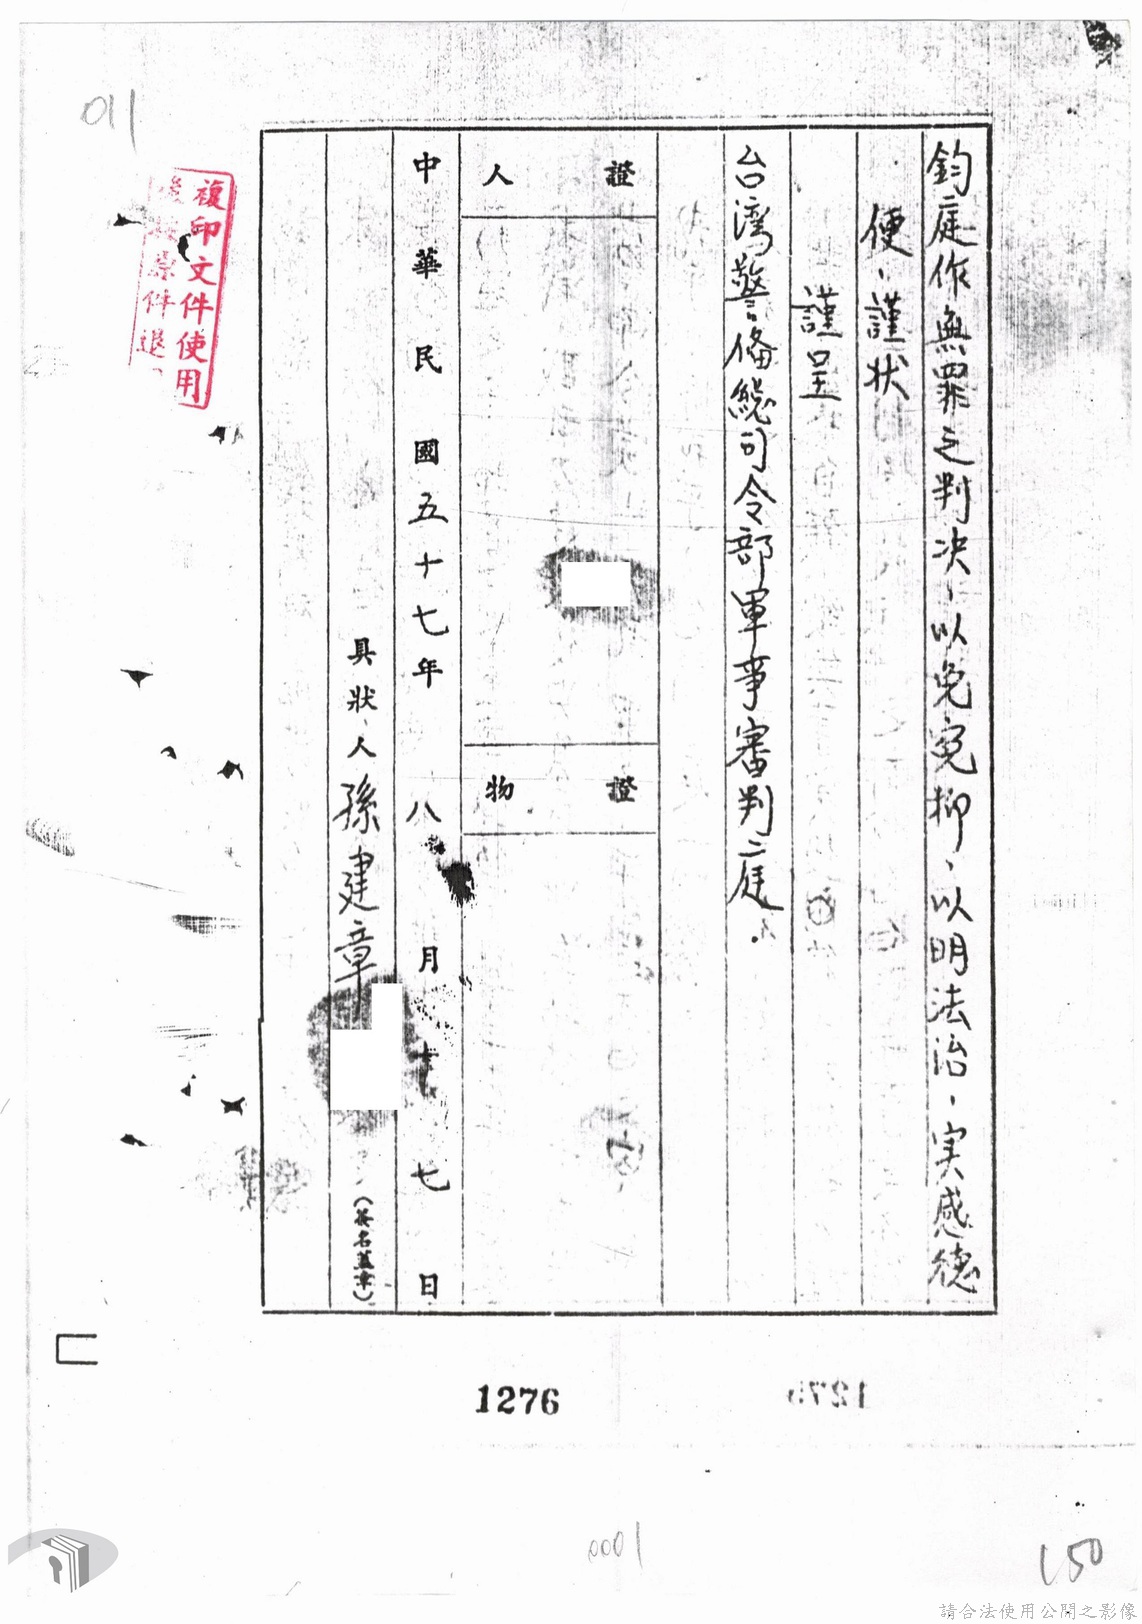 鈞庭作無罪之判決，以免冤抑，以明法治，实感德
便、謹状
謹呈
台湾警俻総司令部軍事審判庭.
證人
證物
中華民國五十七年八月十七日
具狀人孫建章（簽名蓋章）
複印文件使用
後 原件退
011
1276
1275
0001
150
請合法使用公開之影像